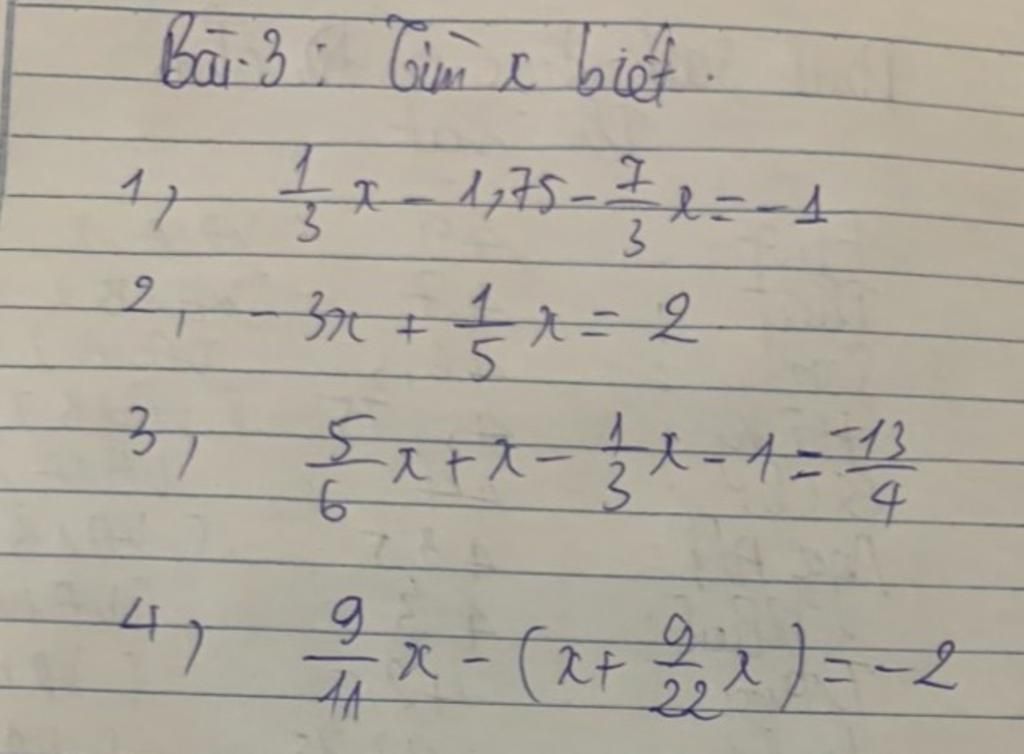 Bài 3: Tìm x biết.
1, 1/3 x - 1,75 - 7/3 x = -1
2, - 3x + 1/5 x = 2
3, 5/6 x + x - 1/3 x - 1 = -13/4
4, 9/11 x - (x + 9/22 x) = -2